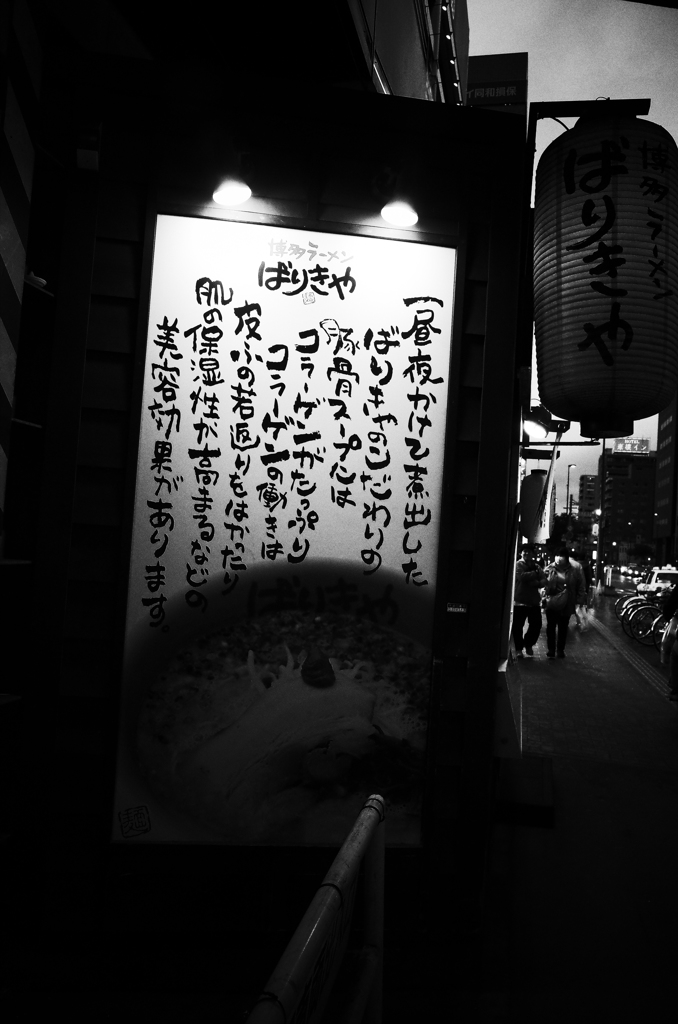 博多ラーメン
ばりきや
一昼夜かけて煮出した
ばりきやのこだわりの
豚骨スープには
コラーゲンがたっぷり
コラーゲンの働きは
皮ふの若返りをはかったり
肌の保湿性が高まるなどの
美容効果があります。
ばりきや
麺
博多ラーメン
ばりきや
イ同和損保
HOTEL